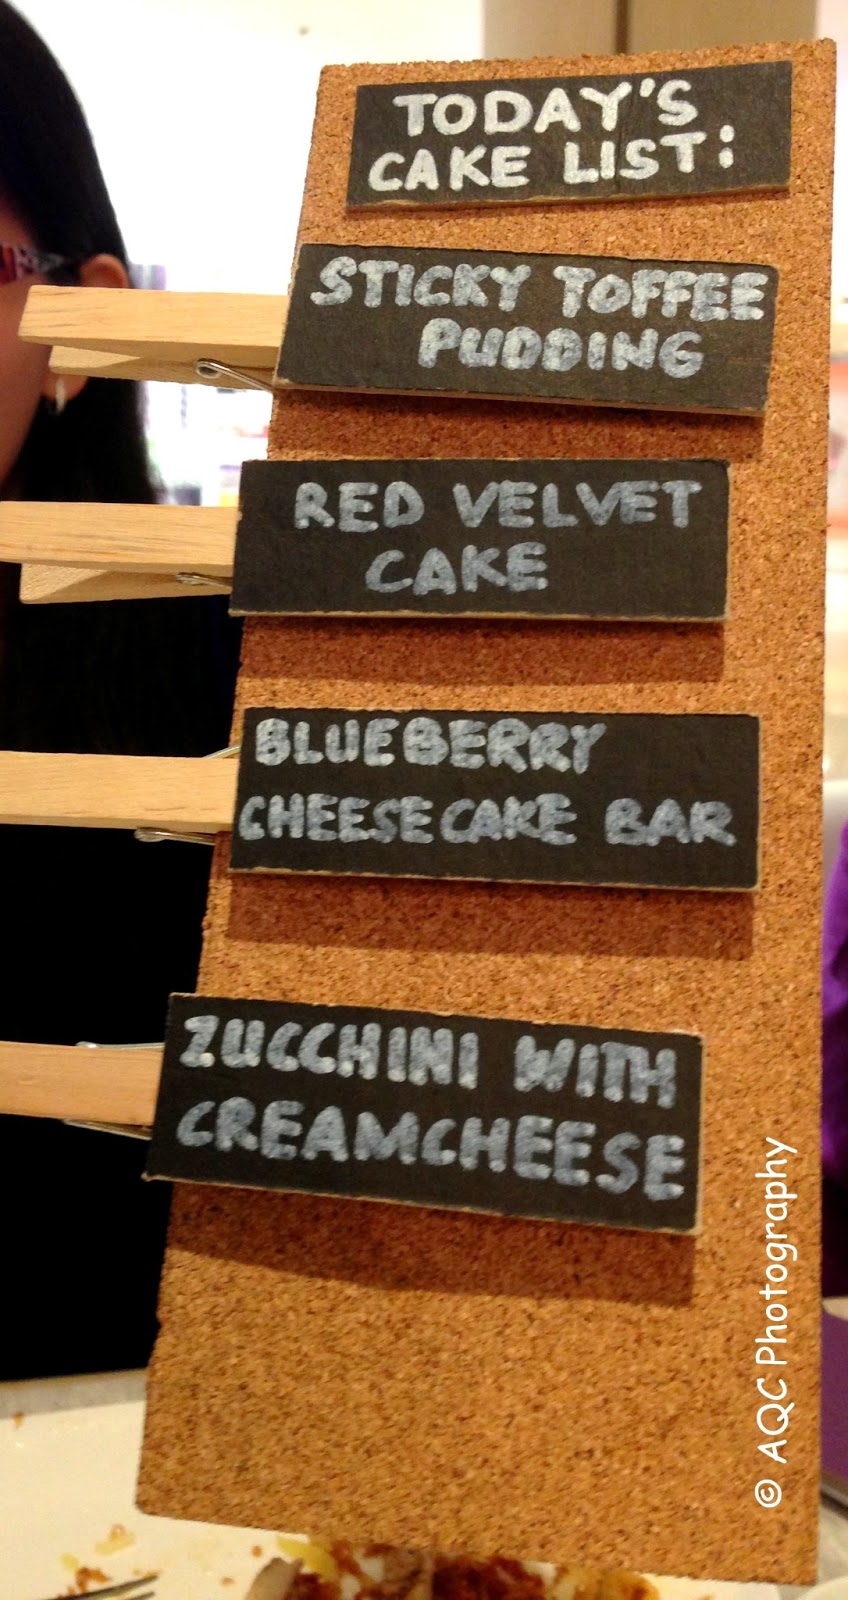 TODAY'S
CAKE LIST:
STICKY TOFFEE
PUDDING
RED VELVET
CAKE
BLUEBERRY
CHEESECAKE BAR
ZUCCHINI WITH
CREAMCHEESE
© AQC Photography